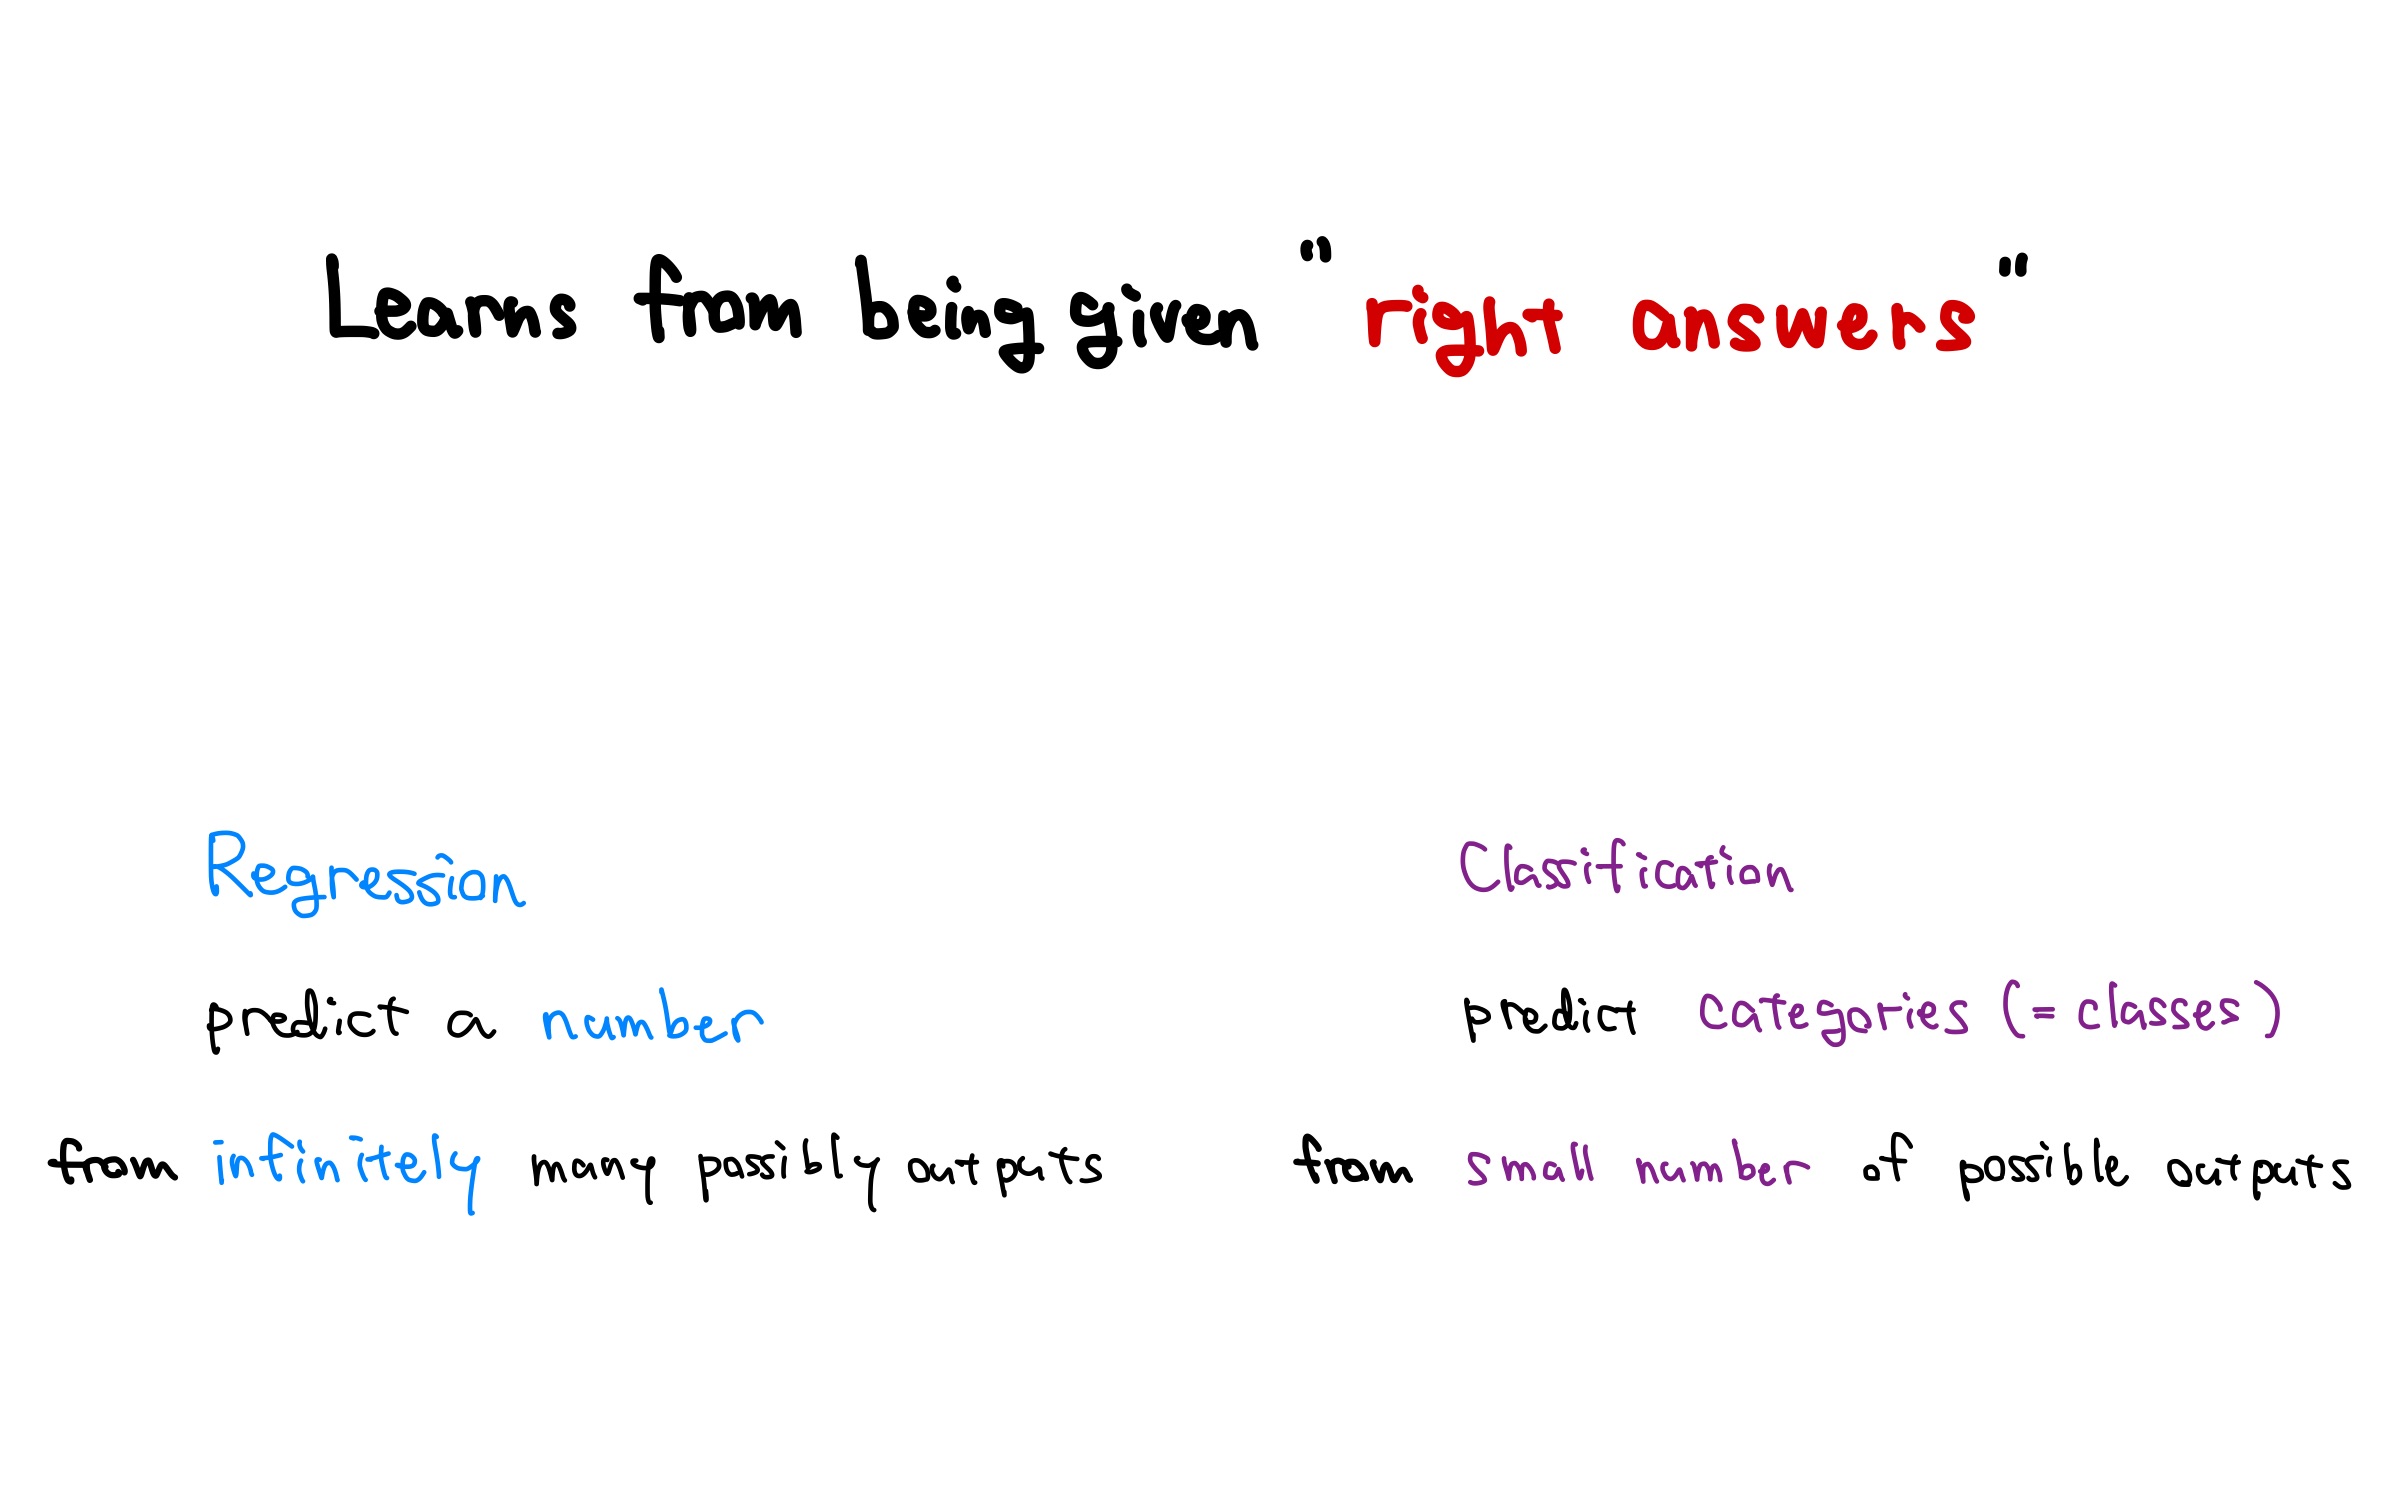 Learns from being given "right answers"
Regression
predict a number
from infinitely many possibly outputs
Classification
predict categories (= classes)
from small number of possible outputs